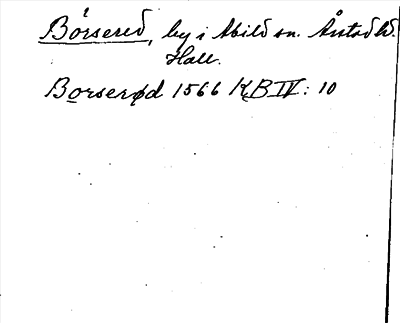 Börsered, by i Abild sn. Årstad hd.
Hall.
Borserød 1566 KB IV: 10